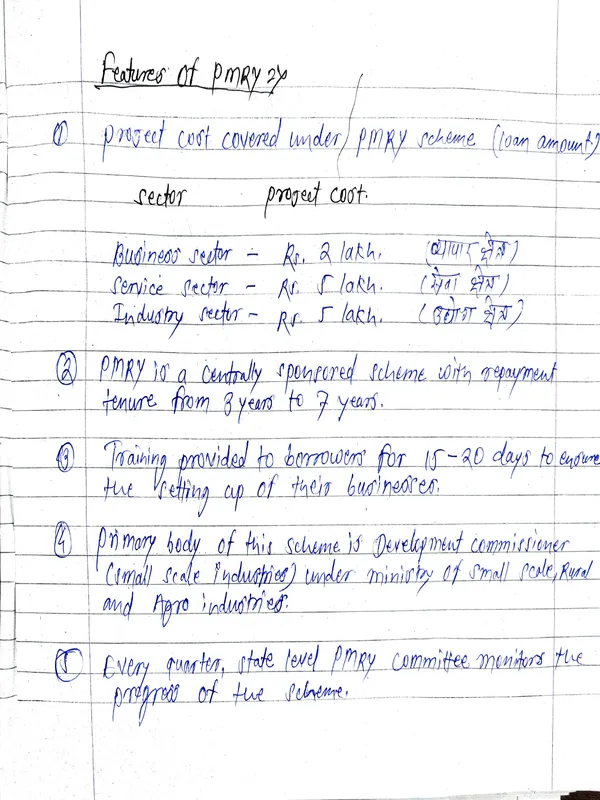 Features of PMRY
① Project cost covered under PMRY scheme (loan amount)
sector project cost.
Business sector - Rs. 2 lakh. (व्यापार क्षेत्र)
Service sector - Rs. 5 lakh. (सेवा क्षेत्र)
Industry sector - Rs. 5 lakh. (उद्योग क्षेत्र)
② PMRY is a centrally sponsored scheme with repayment
tenure from 3 years to 7 years.
③ Training provided to borrowers for 15-20 days to ensure
the setting up of their businesses.
④ Primary body of this scheme is Development commissioner
(small scale industries) under ministry of small scale, Rural
and Agro industries.
⑤ Every quarter, state level PMRY committee monitors the
progress of the scheme.